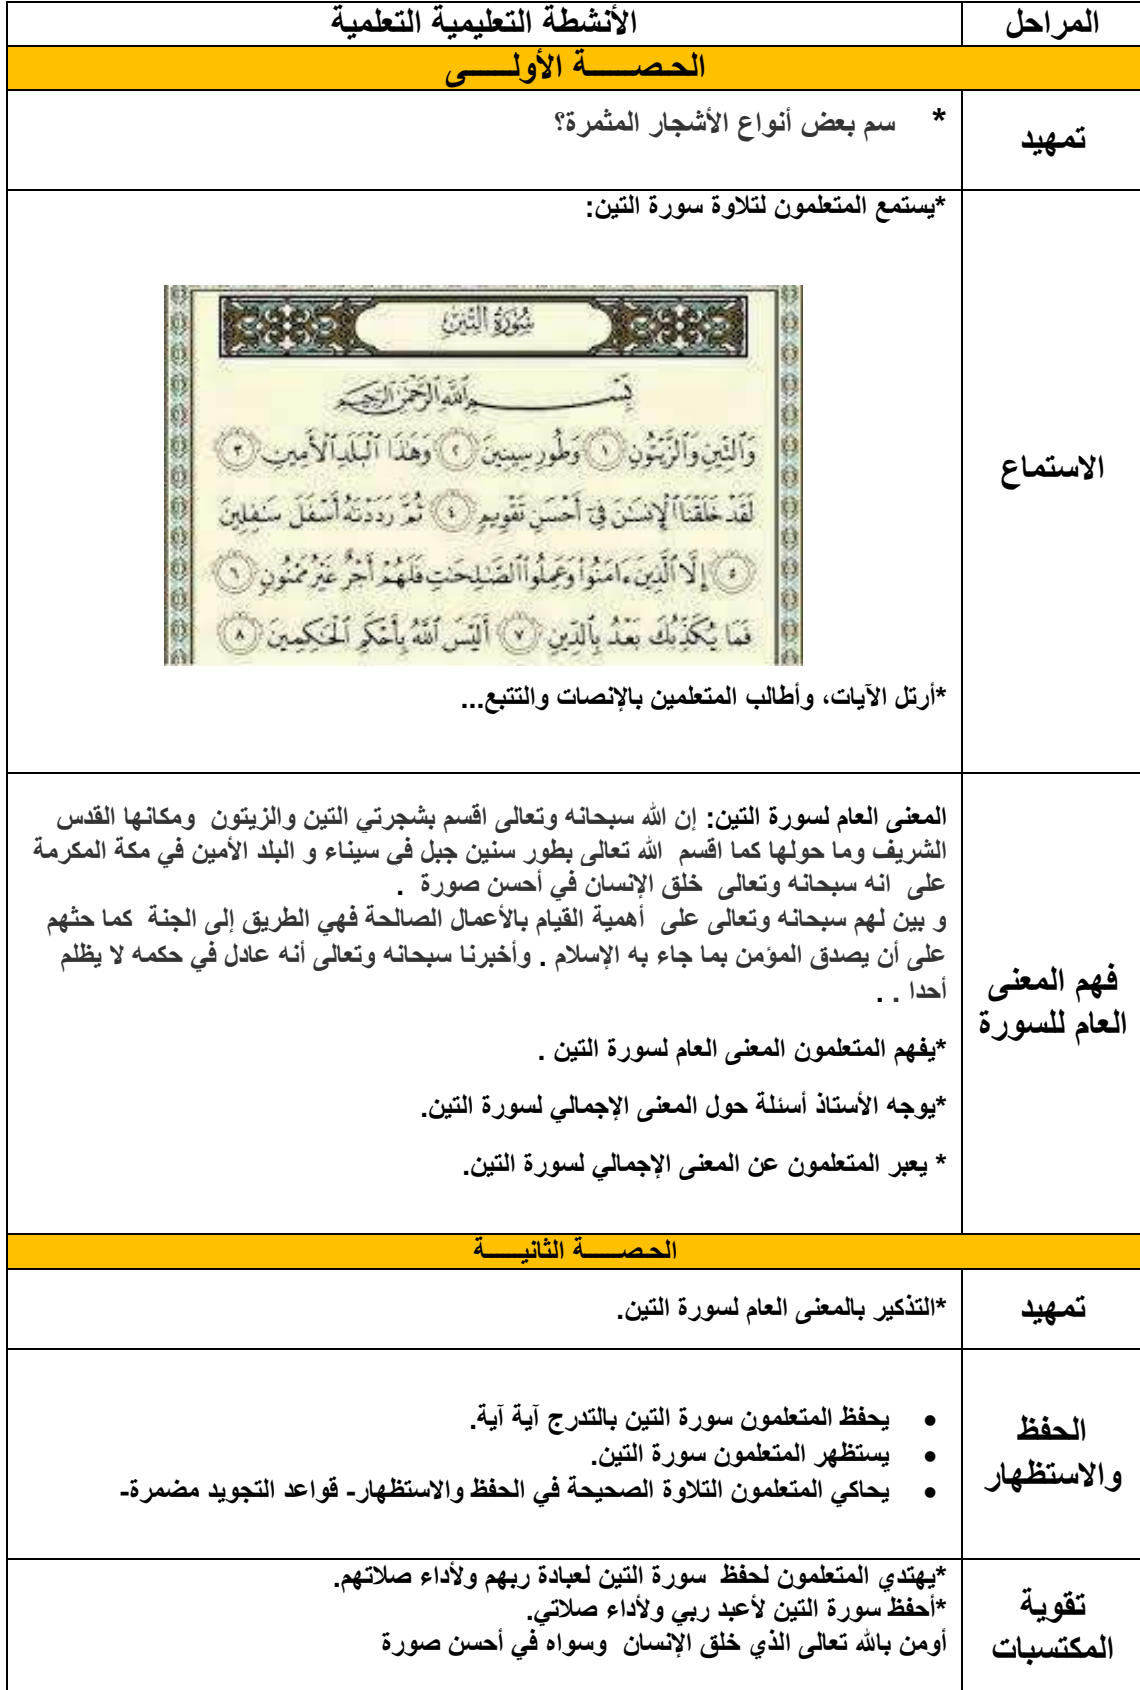 المراحل
الأنشطة التعليمية التعلمية
الحصـــــة الأولـــــى
تمهيد
* سم بعض أنواع الأشجار المثمرة؟
الاستماع
*يستمع المتعلمون لتلاوة سورة التين:
سُورَةُ التِّينِ
بِسْمِ ٱللَّهِ ٱلرَّحْمَٰنِ ٱلرَّحِيمِ
وَٱلتِّينِ وَٱلزَّيْتُونِ ١ وَطُورِ سِينِينَ ٢ وَهَٰذَا ٱلْبَلَدِ ٱلْأَمِينِ ٣
لَقَدْ خَلَقْنَا ٱلْإِنسَٰنَ فِىٓ أَحْسَنِ تَقْوِيمٍ ٤ ثُمَّ رَدَدْنَٰهُ أَسْفَلَ سَٰفِلِينَ
٥ إِلَّا ٱلَّذِينَ ءَامَنُوا۟ وَعَمِلُوا۟ ٱلصَّٰلِحَٰتِ فَلَهُمْ أَجْرٌ غَيْرُ مَمْنُونٍ ٦
فَمَا يُكَذِّبُكَ بَعْدُ بِٱلدِّينِ ٧ أَلَيْسَ ٱللَّهُ بِأَحْكَمِ ٱلْحَٰكِمِينَ ٨
*أرتل الآيات، وأطالب المتعلمين بالإنصات والتتبع...
فهم المعنى
العام للسورة
المعنى العام لسورة التين: إن الله سبحانه وتعالى اقسم بشجرتي التين والزيتون ومكانها القدس
الشريف وما حولها كما اقسم الله تعالى بطور سنين جبل في سيناء و البلد الأمين في مكة المكرمة
على انه سبحانه وتعالى خلق الإنسان في أحسن صورة .
و بين لهم سبحانه وتعالى على أهمية القيام بالأعمال الصالحة فهي الطريق إلى الجنة كما حثهم
على أن يصدق المؤمن بما جاء به الإسلام . وأخبرنا سبحانه وتعالى أنه عادل في حكمه لا يظلم
أحدا . .
*يفهم المتعلمون المعنى العام لسورة التين .
*يوجه الأستاذ أسئلة حول المعنى الإجمالي لسورة التين.
* يعبر المتعلمون عن المعنى الإجمالي لسورة التين.
الحصـــــة الثانيـــــة
تمهيد
*التذكير بالمعنى العام لسورة التين.
الحفظ
والاستظهار
• يحفظ المتعلمون سورة التين بالتدرج آية آية.
• يستظهر المتعلمون سورة التين.
• يحاكي المتعلمون التلاوة الصحيحة في الحفظ والاستظهار- قواعد التجويد مضمرة-
تقوية
المكتسبات
*يهتدي المتعلمون لحفظ سورة التين لعبادة ربهم ولأداء صلاتهم.
*أحفظ سورة التين لأعبد ربي ولأداء صلاتي.
أومن بالله تعالى الذي خلق الإنسان وسواه في أحسن صورة